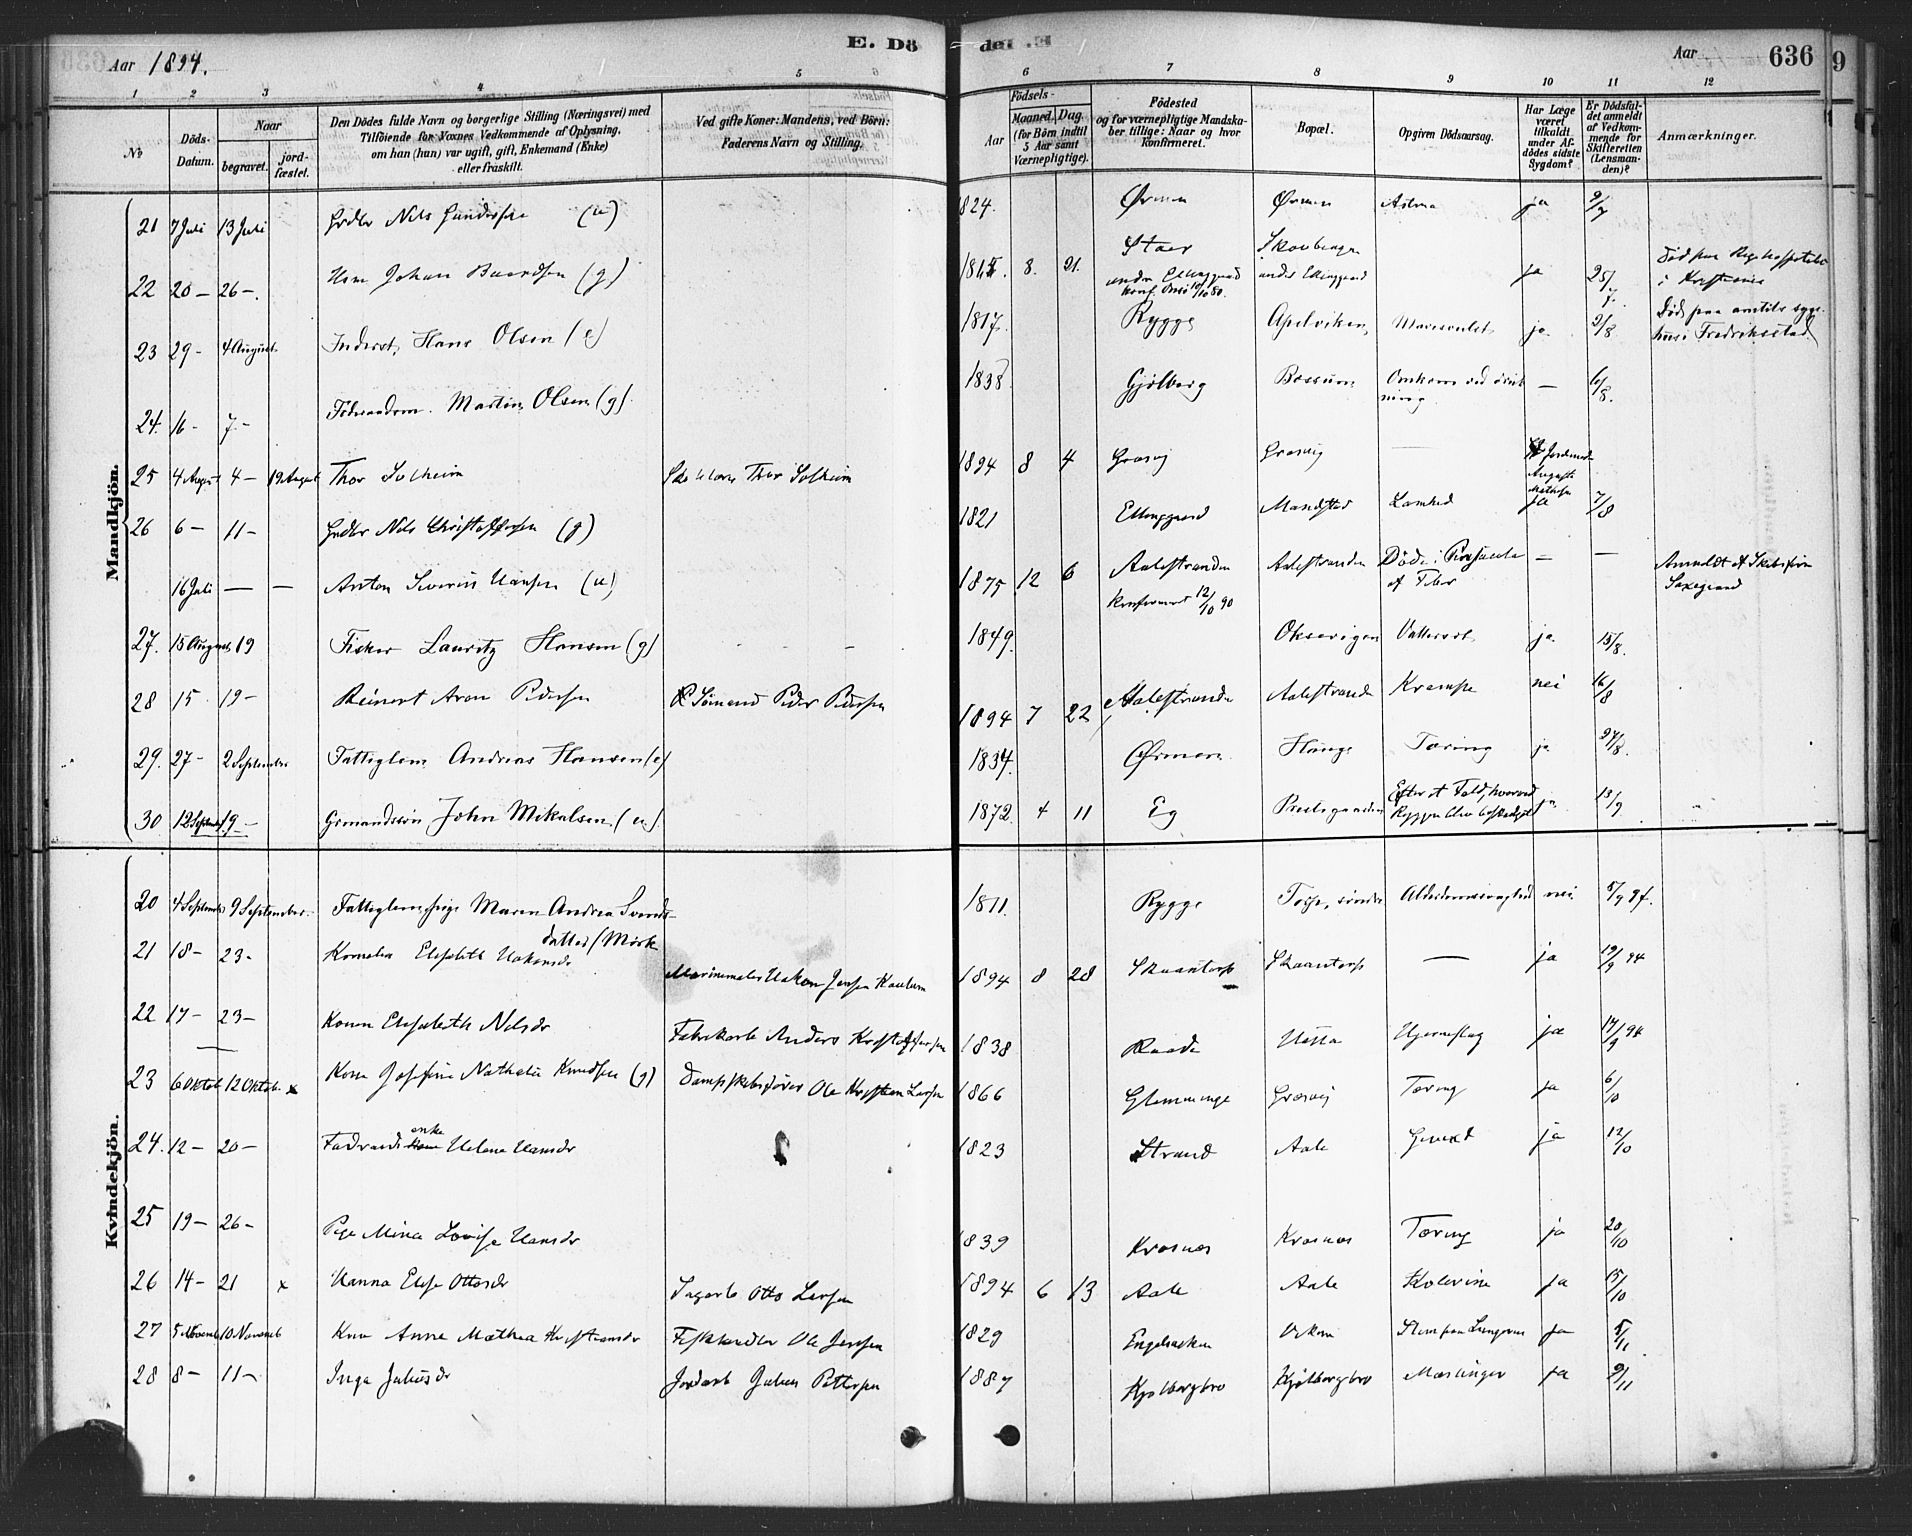 Aar 1894.
E. Dö
de E.
Aar
636
9
1 2 3 4 5 6
6 7 8 9 10 11 12
No
Döds-Datum.
Naar
begravet.
jord-fæstet.
Den Dödes fulde Navn og borgerlige Stilling (Næringsvei) med
Tilföiende for Voxnes Vedkommende af Oplysning,
om han (hun) var ugift, gift, Enkemand (Enke)
eller fraskilt.
Ved gifte Koner: Mandens, ved Börn:
Faderens Navn og Stilling.
Födsels-
Aar
Maaned. Dag.
(for Börn indtil
5 Aar samt
Værnepligtige).
Födested
og for værnepligtige Mandska-
ber tillige: Naar og hvor
Konfirmeret.
Bopæl.
Opgiven Dödsaarsag.
Har Læge
været
tilkaldt
under Af-
dödes sidste
Sygdom?
Er Dödsfal-
det anmeldt
af Vedkom-
mende for
Skifteretten
(Lensman-
den)?
Anmærkninger.
Mandkjön.
21 7 Juli 13 Juli Grdbr Nils Gundersen (u) 1824. Ørmen Ørmen Astma ja 9/7
22 20 — 26 —. Hsm Johan Baardsen (g) 8. 21. under Elingaard konf. Onsö 10/10 80. under Elingaard ja 25/7. Död paa Rigshospitalet i Kristiania
23 29 - 4 August Inderst. Hans Olsen (e) 1817. Rygge Apelviken ja 2/8 Död paa amtets syge-
hus i Fredriksstad.
24. 16 - 7 - Martin Olsen (g). 1838. Gjölberg Bossum Omkom ved — 6/8.
25 4 August 4 — 19 August Thor Solheim Thor Solheim 1894 8 4 Græsvig Græsvig — Jordmoder Augusta
26 6 — 11 — Grdbr Nils Christoffersen (g) 1821 Elingaard Mandstad Lamhed ja 7/8
16 Juli — — Anton Severin Hansen (u) 1875 12 6 Aalestranden Konfirmeret 12/10 90 Aalestranden af Feber — — Anmeldt af Skibsfører
27. 15 August 19 Fisker Lauritz Hansen (g) 1849. Oksevigen Vattersot ja 15/8.
28 15. 19 - Reinert Aron Pedersen Sömand Peder Pedersen 1894 7 22 Aalestranden Aalestrande Krampe nei 16/8
29. 27 - 2 September Fattiglem Andreas Hansen (e) 1834. Ørmen Hauge Tæring ja 27/8.
30 12 September 19 — Grmandssön John Mikalsen (u) 1872. 4 11 Eg Prestegaarden Efter et Fald, hvorved Ryggen blev beskadiget ja 13/9
Kvindekjön.
20 4 September 9 September. Maren Andrea Svends-
datter (Mörk 1811. Rygge Torp, söndre Alderdomssvaghed nei 5/9 94.
21 18 — 23 - Kornelia Elisabeth Hakonsdr Hakon Jensen 1894 8 28 Skaantorp Skaantorp — ja 19/9 94
22 17 — 23 — Konen Elisabeth Nilsdr Fabrikarb Anders Kristoffersen 1838 Raade Hjerneslag ja 17/9 94
23 6 Oktob 12 Oktob x Kone Josefine Nathalie Knudsen (g) Dampskibsförer Ole Kristian Larsen 1866 Glemminge Græsvig Tæring ja 6/10
24. 12 — 20 — enke Helene Hansdr 1823 Strand Aale ja 12/10
25 19 — 26 — Pige Mina Lovise Hansdr 1839 Krosnes Krosnes Tæring ja 20/10
26 14 — 21 x Hanna Elise Ottosdr Sagarb Otto Larsen 1894 6 13 Aale Aale Kolerine ja 15/10
27 5 Novemb 10 Novemb Kone Anne Mathea Kristiansdr Fiskhandler Ole Jensen 1829 Engelsviken ja 5/11
28 8 — 11 — Inga Juliusdr Jordarb Julius Pettersen 1887 Kjölbergbro Kjölbergbro Mæslinger ja 9/11